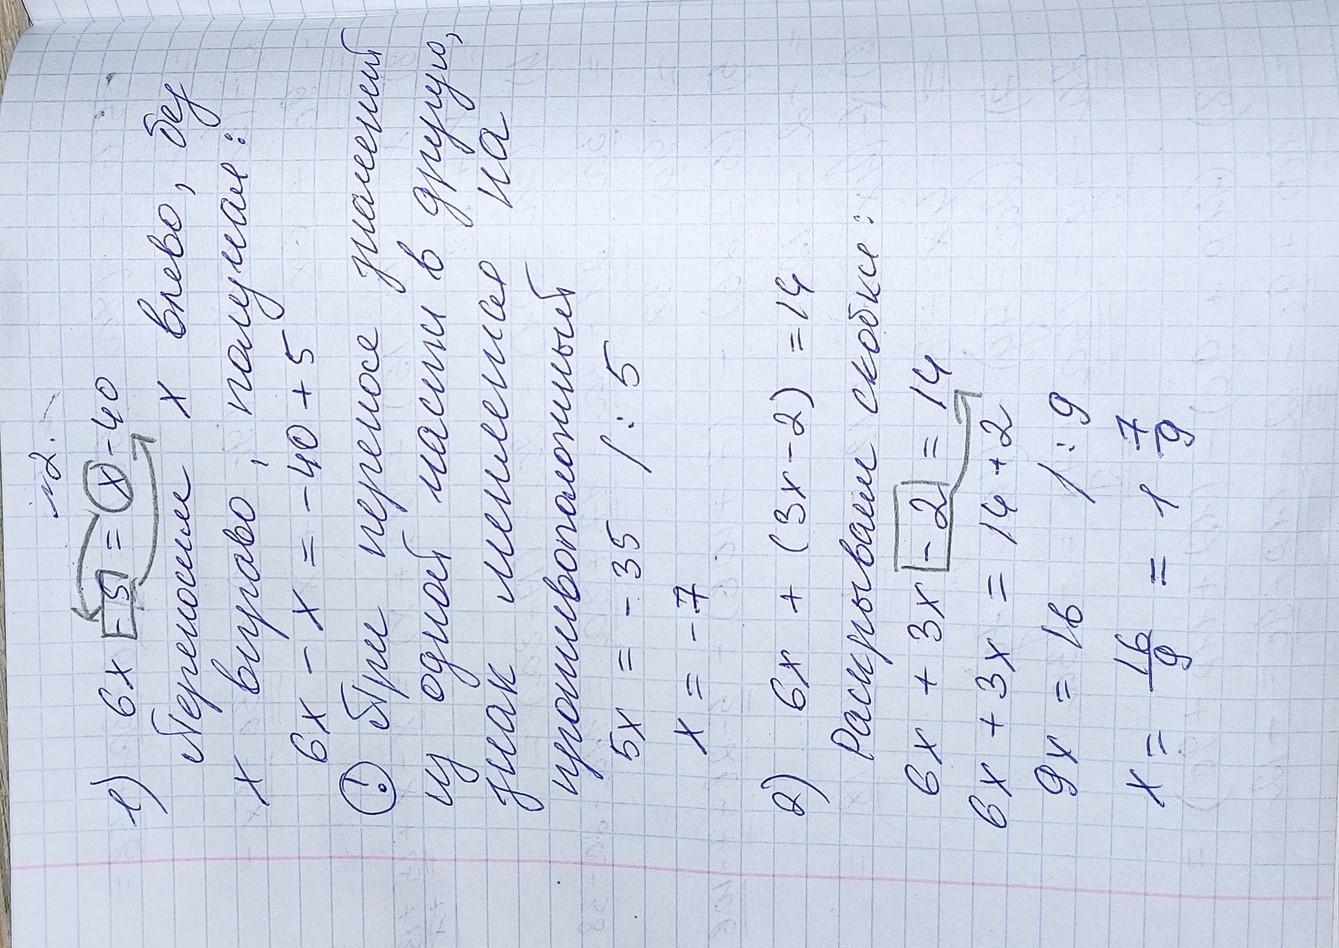 №2.
1) 6x - 5 = x - 40
Переносим x влево, без
x вправо, получаем:
6x - x = -40 + 5
! При переносе значений
из одной части в другую,
знак меняется на
противоположный
5x = -35 /: 5
x = -7
2) 6x + (3x - 2) = 14
Раскрываем скобки:
6x + 3x - 2 = 14
6x + 3x = 14 + 2
9x = 16 /: 9
x = 16/9 = 1 7/9